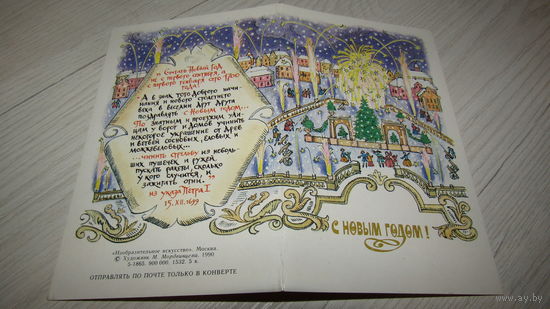 „... и Считать Новый Год
не с первого сентября, а
с первого генваря сего 1700
года!
А в знак того доброго начи-
нания и нового столетнего
века в веселии друг друга
поздравлять с Новым годом...
По знатным и проезжим ули-
цам у ворот и домов учинить
некоторое украшение от древ
и ветвей сосновых, еловых и
можжевеловых...
...чинить стрельбу из неболь-
ших пушечек и ружей,
пускать ракеты, сколько
у кого случится, и
зажигать огни."
из указа Петра I
15. XII. 1699
С НОВЫМ ГОДОМ!
«Изобразительное искусство». Москва.
© Художник М. Мордвинцева. 1990
5-1865. 900 000. 1532. 5 к.
ОТПРАВЛЯТЬ ПО ПОЧТЕ ТОЛЬКО В КОНВЕРТЕ
www.ay.by